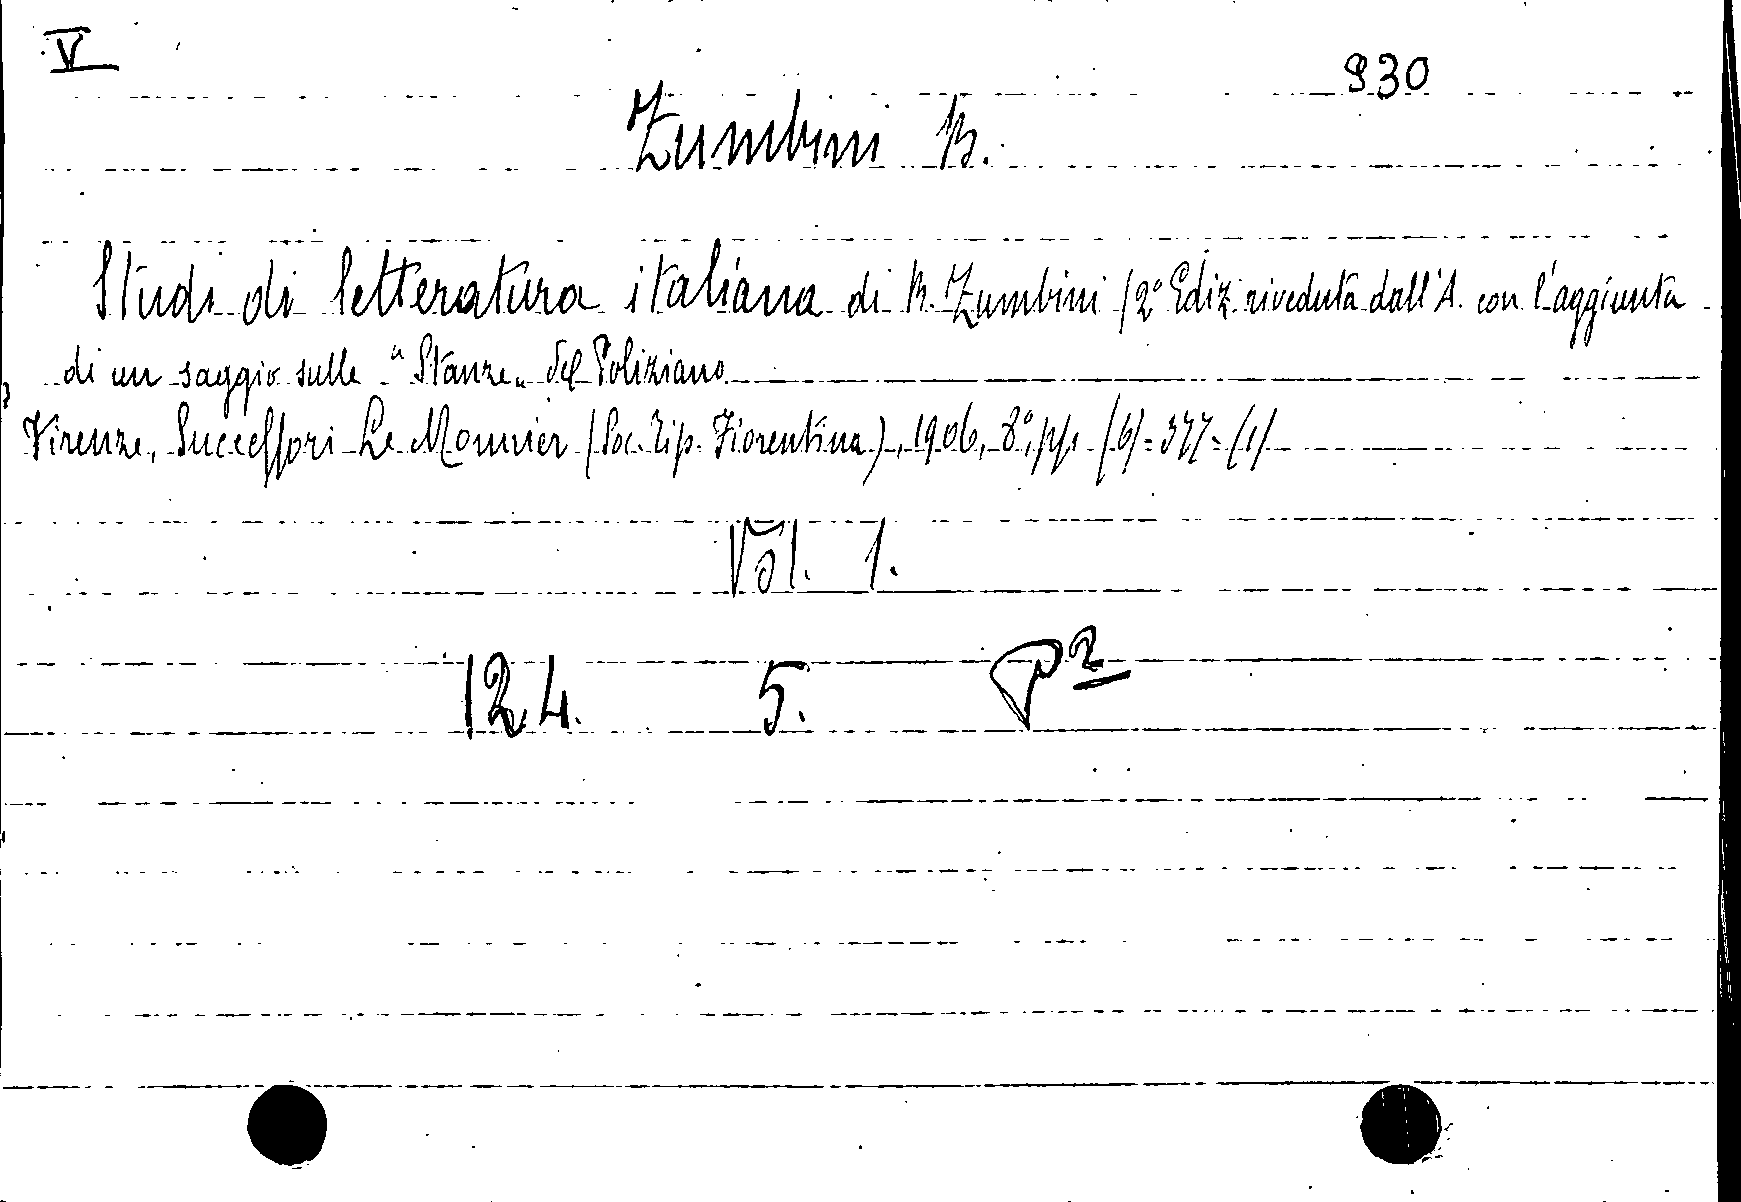 V
930
Zumbini B.
Studi di letteratura italiana di B. Zumbini (2° Ediz. riveduta dall'A. con l'aggiunta
di un saggio sulle "Stanze" del Poliziano
Firenze, Successori Le Monnier (Soc. Tip. Fiorentina), 1906, 8°, pp. (6)-377-(1)
Vol. 1.
124. 5. P²